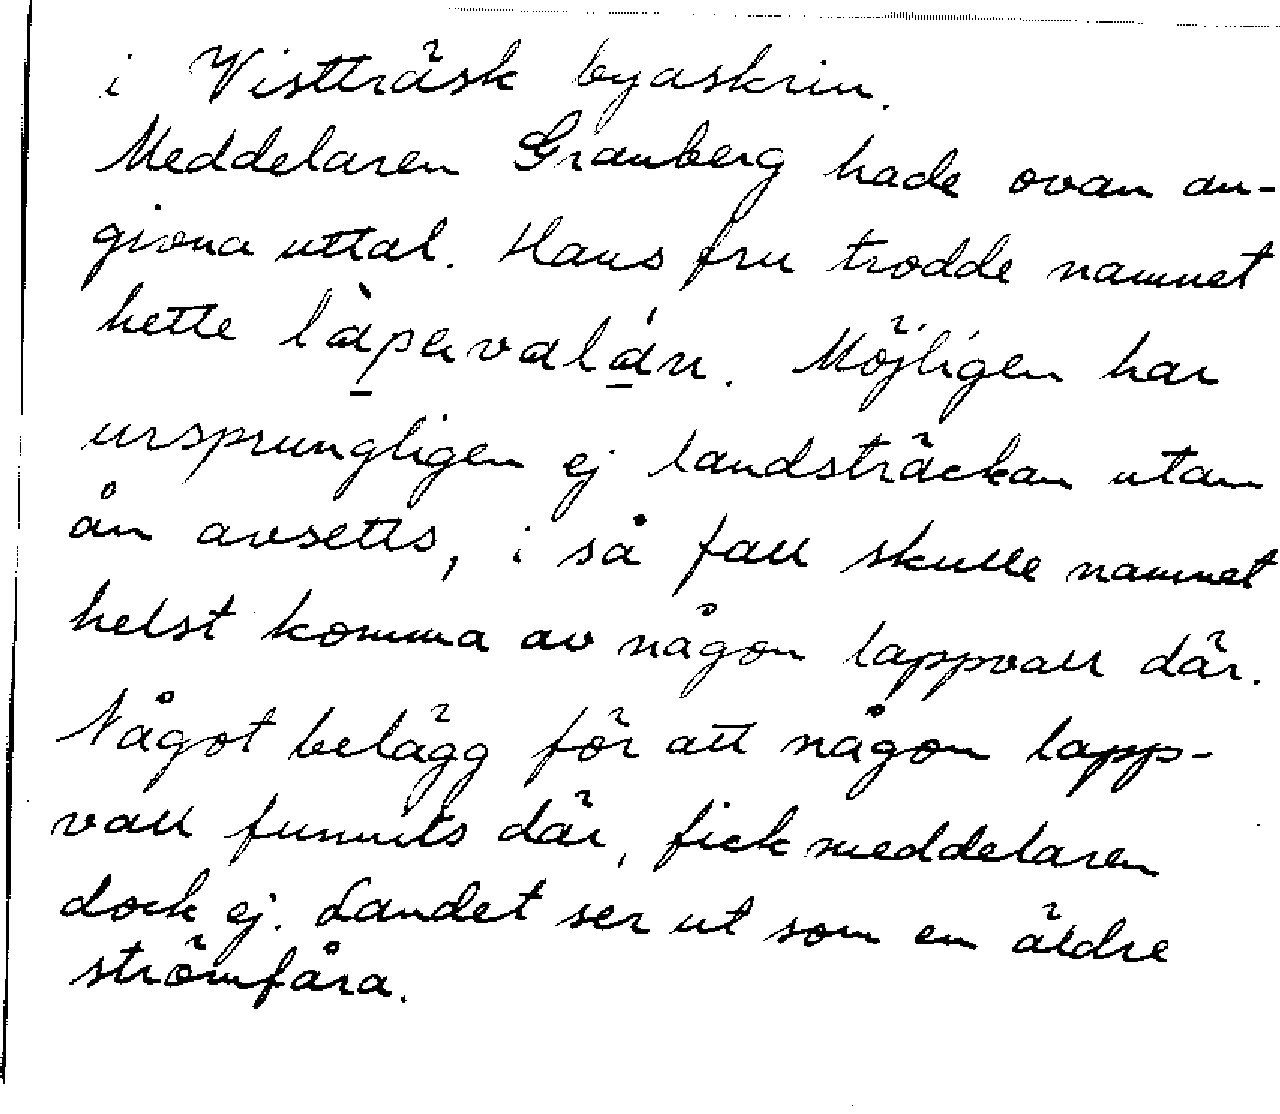 i Vistträsk byaskrin.
Meddelaren Granberg hade ovan an-
givna uttal. Hans fru trodde namnet
hette làpavalán. Möjligen har
ursprungligen ej landsträckan utan
ån avsetts, i så fall skulle namnet
helst komma av någon lappvall där.
Något belägg för att någon lapp-
vall funnits där, fick meddelaren
dock ej. Landet ser ut som en äldre
strömfåra.